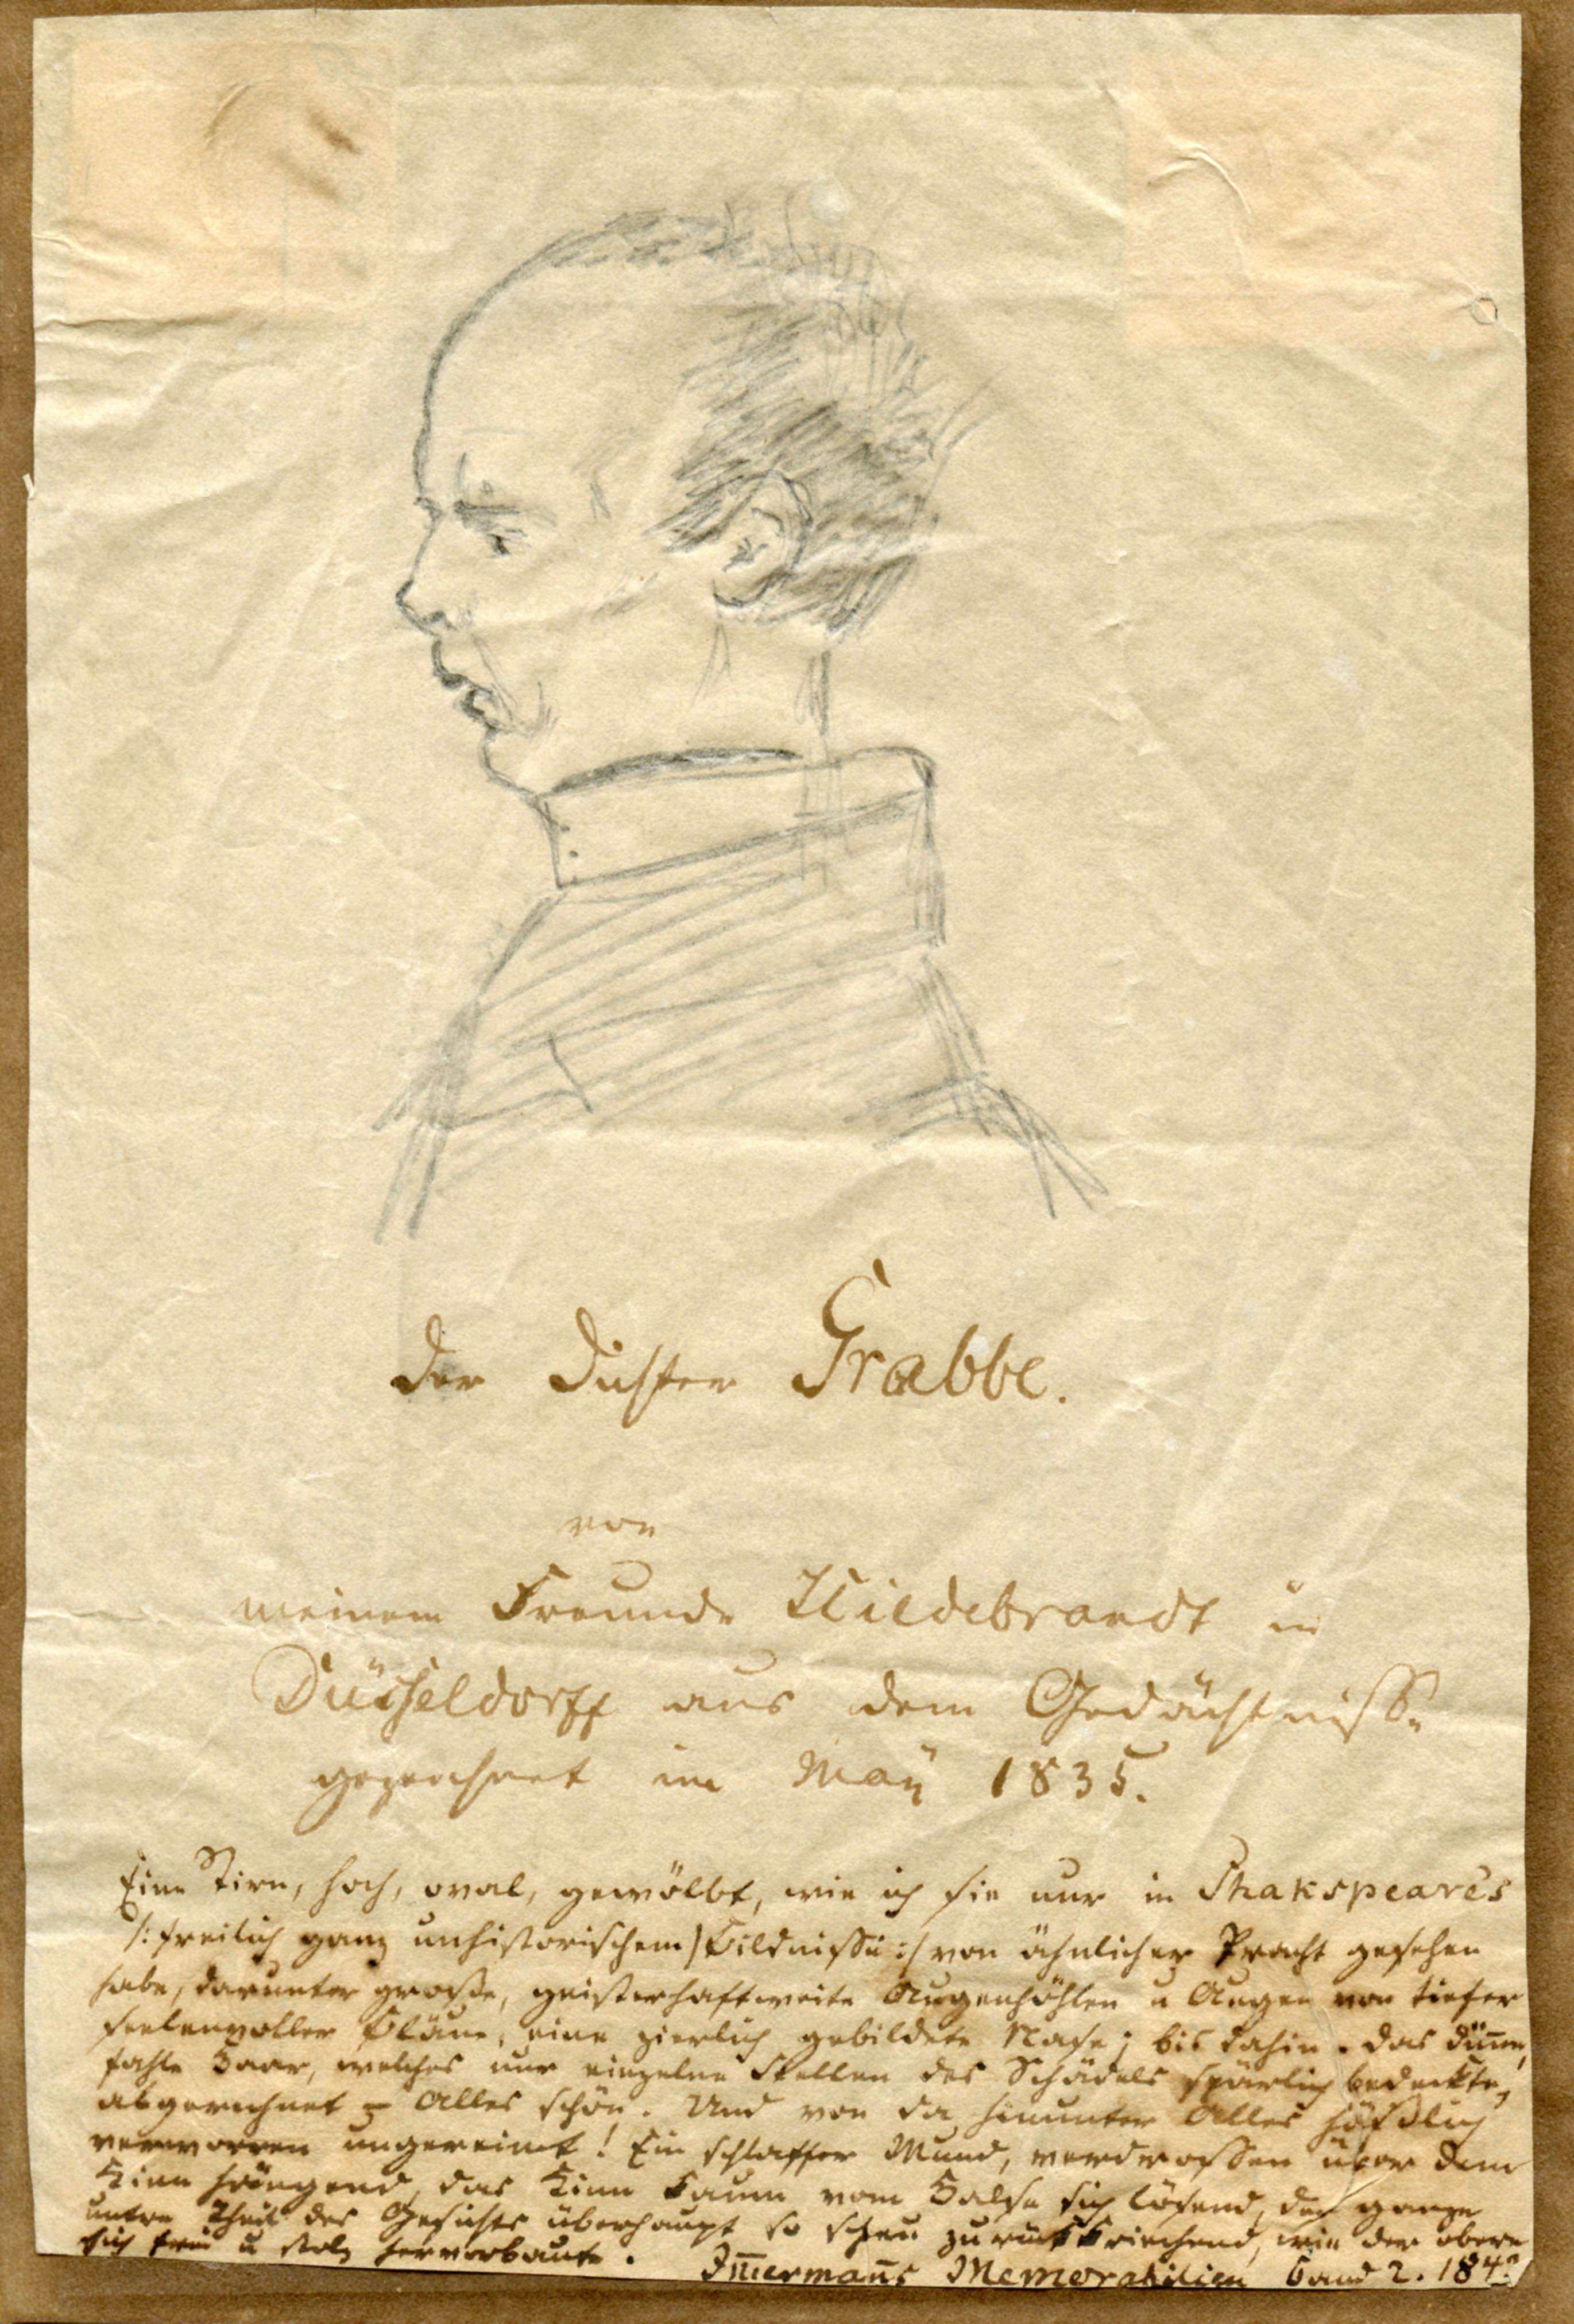 Der Dichter Grabbe.
von
meinem Freunde Hildebrandt in
Düsseldorff aus dem Gedächtnisse
gezeichnet im May 1835.
Eine Stirn, hoch, oval, gewölbt, wie ich sie nur in Shakspeare's
/: freilich ganz unhistorischem) Bildnisse :/ von ähnlicher Pracht gesehen
habe, darunter große, geisterhaftweite Augenhöhlen u Augen von tiefer
seelenvoller Bläue, eine zierlich gebildete Nase; bis dahin. das dünne,
fahle Haar, welches nur einzelne Stellen des Schädels spärlich bedeckte,
abgerechnet – Alles schön. Und von da hinunter Alles häßlich
verworren ungereimt! Ein schlaffer Mund, verdrossen über dem
Kinn hängend, das Kinn kaum vom Halse sich lösend, der ganze
untre Theil des Gesichts überhaupt so scheu zurückkriechend, wie der obere
sich frei u stolz hervorbaute. Im̅erman̅s Memorabilien Band 2. 184